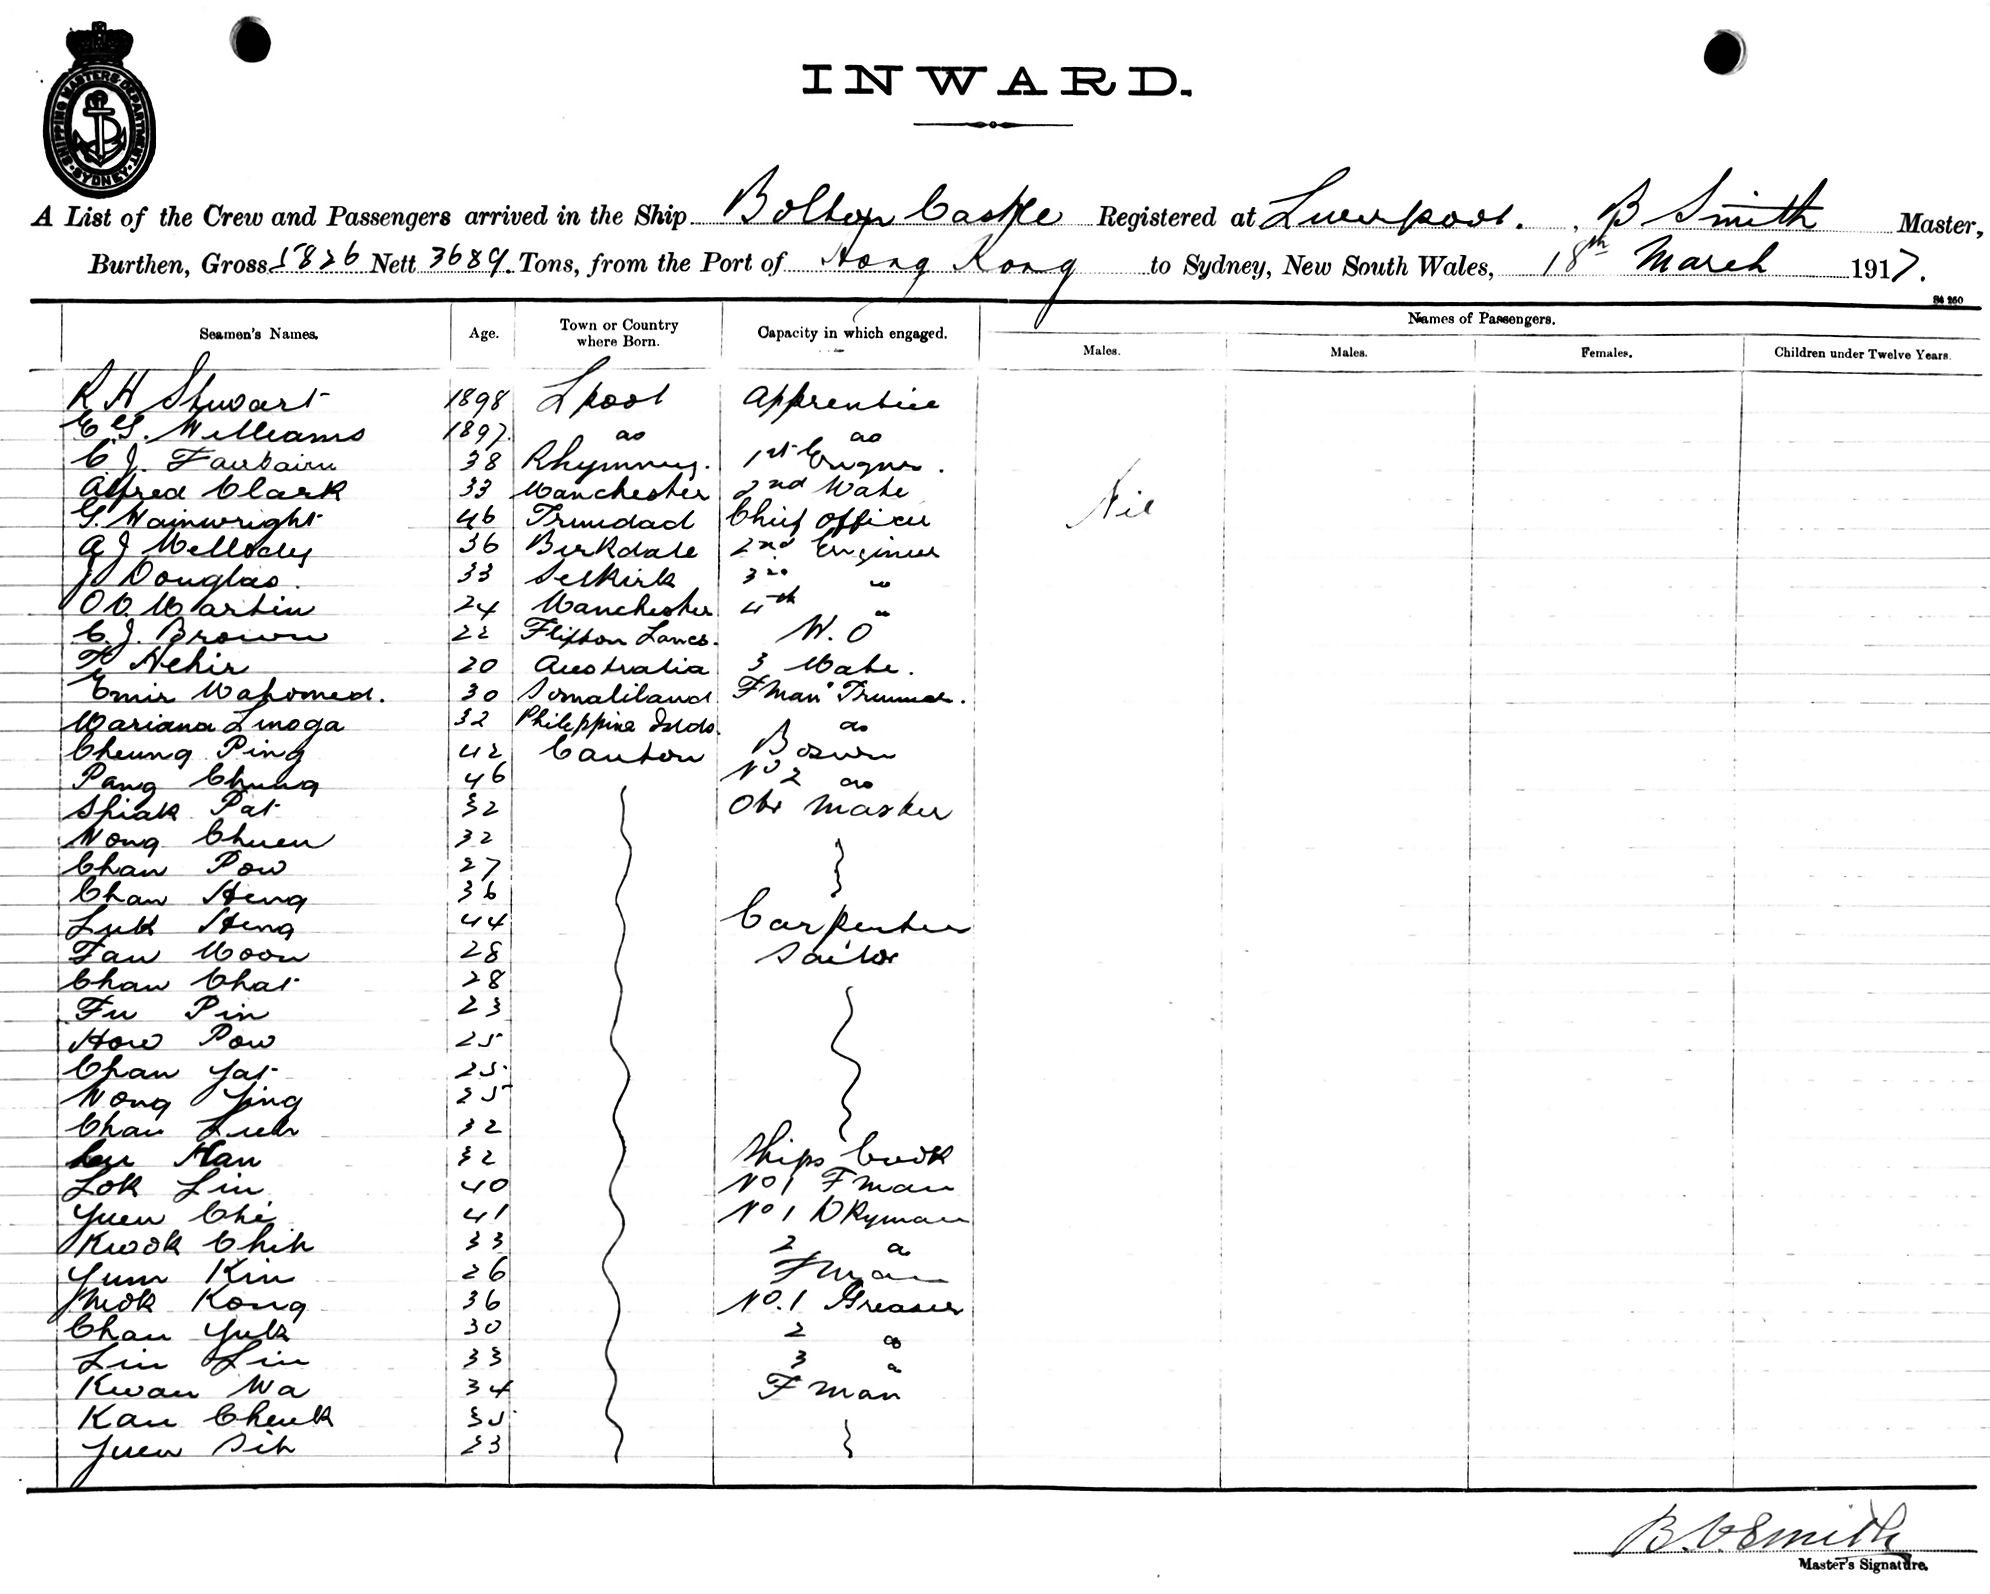 SHIPPING MASTERS DEPARTMENT
SYDNEY
INWARD.
A List of the Crew and Passengers arrived in the Ship Bolton Castle Registered at Liverpool. B Smith Master,
Burthen, Gross 5826 Nett 3689. Tons, from the Port of Hong Kong to Sydney, New South Wales, 18th March 1917.
S4 250
Seamen's Names. Age. Town or Country where Born. Capacity in which engaged. Names of Passengers.
Males. Males. Females. Children under Twelve Years.
R H Stewart 1898 Lpool Apprentice
C G. Williams 1897 do do
C J. Fairbairn 38 Rhymney. 1st Engnr.
Alfred Clark 33 Manchester 2nd Mate
G. Wainwright 46 Trinidad Chief Officer Nil
A J Mellody 36 Birkdale 2nd Engineer
J Douglas. 33 Selkirk 3rd "
O V. Martin 24 Manchester 4th "
C. J. Brown 22 Flixton Lancs. W. O
F Nehir 20 Australia 3 Mate.
Emir Mahomed. 30 Somaliland Fman
Mariana Linoga 32 Philippine Islds. do
Cheung Ping 42 Canton Bosun
Pang Chung 46 No 2 do
Shiak Pat 32 Qtr Master
Wong Chuen 32
Chan Pow 27
Chan Heng 36
Luk Heng 44 Carpenter
Fan Moon 28 Sailor
Chan Chat 28
Fu Pin 23
How Pow 25
Chan Yat 25
Wong Ying 25
Chan Lueh 32
Han 32 Ships Cook
Lok Lin 40 No 1 Fman
Yuen Chi 41 No 1 DKyman
Kwok Chih 33 2 do
Yum Kin 26 Fman
Kong 36 No. 1 Greaser
Chan Yuk 30 2 do
Lin Lin 33 3 do
Kwan Wa 34 Fman
Kau Cheuk 35
Yuen Sih 23
B. V. Smith
Master's Signature.